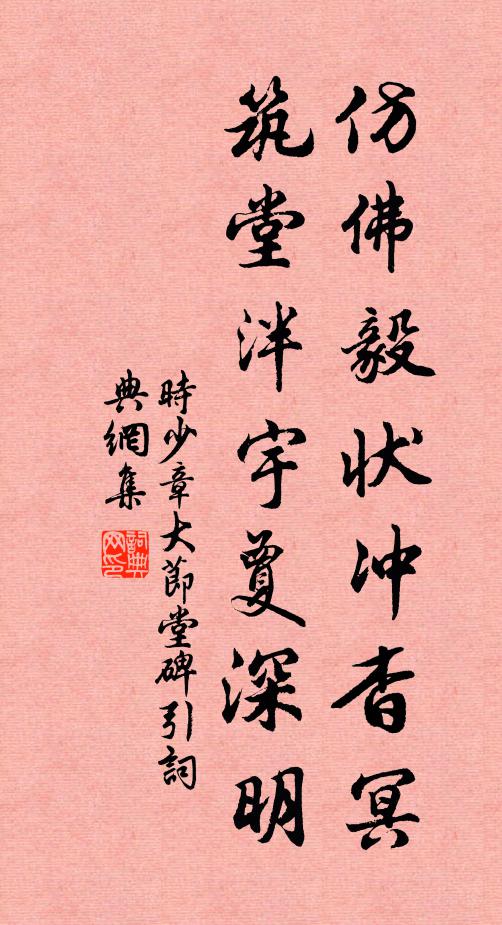 仿佛毅状冲杳冥
筑堂泮宇夐深明
時少章大節堂碑引詞
典網集
詞典网印